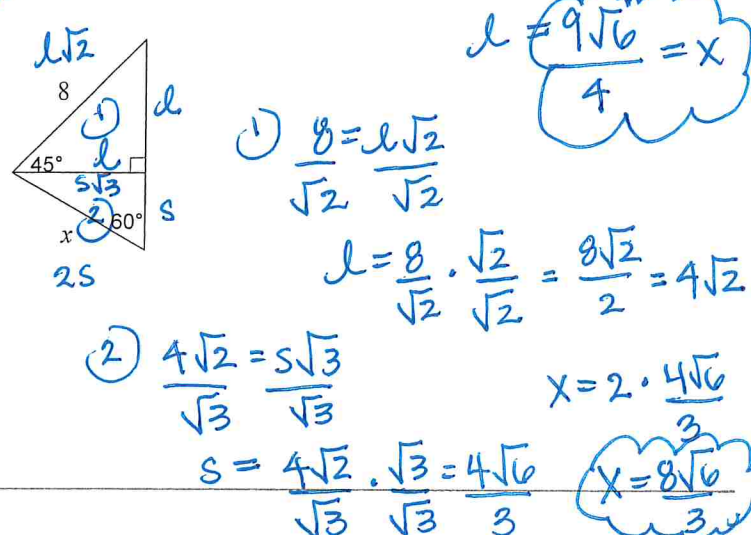 l = 9√6/4 = x
l√2
8
①
l
45°
l
s√3
② 60°
s
x
2s
① 8/√2 = l√2/√2
l = 8/√2 · √2/√2 = 8√2/2 = 4√2
② 4√2/√3 = s√3/√3
x = 2 · 4√6/3
s = 4√2/√3 · √3/√3 = 4√6/3
x = 8√6/3